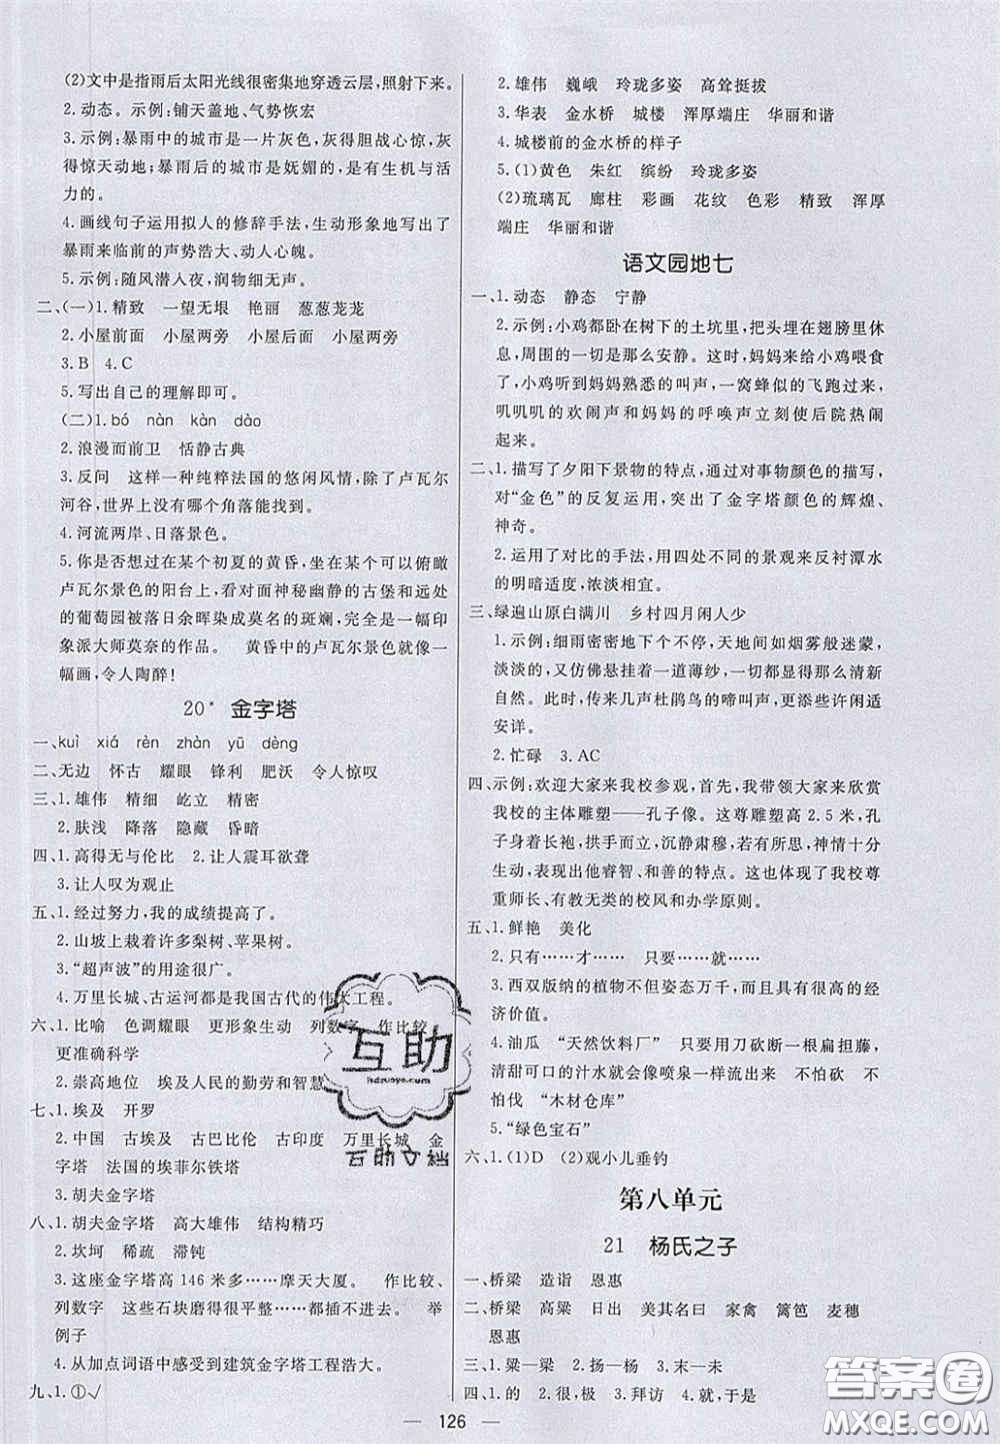 (2)文中是指雨后太阳光线很密集地穿透云层,照射下来。
2.动态。示例:铺天盖地、气势恢宏
3.示例:暴雨中的城市是一片灰色,灰得胆战心惊,灰
得惊天动地;暴雨后的城市是妩媚的,是有生机与活
力的。
4.画线句子运用拟人的修辞手法,生动形象地写出了
暴雨来临前的声势浩大、动人心魄。
5.示例:随风潜入夜,润物细无声。
二、(一)1.精致 一望无垠 艳丽 葱葱茏茏
2.小屋前面 小屋两旁 小屋两旁
3.B 4.C
5.写出自己的理解即可。
(二)1.bó nàn kàn dào
2.浪漫而前卫 恬静古典
3.反问 这样一种纯粹法国的悠闲风情,除了卢瓦尔
河谷,世界上没有哪个角落可以演绎。
4.河流两岸、日落景色。
5.你是否想过在某个初夏的黄昏,坐在某个可以俯瞰
卢瓦尔景色的阳台上,看对面神秘幽静的古堡和远处
的葡萄园被日落余晖染成莫名的斑斓,完全是一幅印
象派大师莫奈的作品。 黄昏中的卢瓦尔景色就像一
幅画,令人陶醉!
20* 金字塔
一、kuì xiá rèn zhàn yū dèng
二、无边 怀古 耀眼 锋利 肥沃 令人惊叹
三、1.雄伟 精细 屹立 精密
2.肤浅 降落 隐藏 昏暗
四、1.高得无与伦比 2.让人震耳欲聋
3.让人叹为观止
五、1.经过努力,我的成绩提高了。
2.山坡上栽着许多梨树、苹果树。
3.“超声波”的用途很广。
4.万里长城、古运河都是我国古代的伟大工程。
六、1.比喻 色调耀眼 更形象生动 列数字 作比较
更准确科学
2.崇高地位 埃及人民的勤劳和智慧
七、1.埃及 开罗
2.中国 古埃及 古巴比伦 古印度 万里长城 金
字塔 法国的埃菲尔铁塔
3.胡夫金字塔
八、1.胡夫金字塔 高大雄伟 结构精巧
2.坎坷 稀疏 滞钝
3.这座金字塔高 146 米多……摩天大厦。 作比较、
列数字 这些石块磨得很平整……都插不进去。 举
例子
4.从加点词语中感受到建筑金字塔工程浩大。
九、1.①√
2.雄伟 巍峨 玲珑多姿 高耸挺拔
3.华表 金水桥 城楼 浑厚端庄 华丽和谐
4.城楼前的金水桥的样子
5.(1)黄色 朱红 缤纷 玲珑多姿
(2)琉璃瓦 廊柱 彩画 花纹 色彩 精致 浑厚
端庄 华丽和谐
语文园地七
一、1.动态 静态 宁静
2.示例:小鸡都卧在树下的土坑里,把头埋在翅膀里休
息,周围的一切是那么安静。这时,妈妈来给小鸡喂食
了,小鸡听到妈妈熟悉的叫声,一窝蜂似的飞跑过来,
叽叽叽的欢闹声和妈妈的呼唤声立刻使后院热闹
起来。
二、1.描写了夕阳下景物的特点,通过对事物颜色的描写,
对“金色”的反复运用,突出了金字塔颜色的辉煌、
神奇。
2.运用了对比的手法,用四处不同的景观来反衬潭水
的明暗适度,浓淡相宜。
三、绿遍山原白满川 乡村四月闲人少
1.示例:细雨密密地下个不停,天地间如烟雾般迷蒙,
淡淡的,又仿佛悬挂着一道薄纱,一切都是那么的清新
自然。此时,传来几声杜鹃鸟的啼叫声,增添些许闲适
安详。
2.忙碌 3.AC
四、示例:欢迎大家来我校参观,首先,我带领大家来欣赏
我校的主体雕塑——孔子像。这尊雕塑高 2.5 米,孔
子身着长袍,拱手而立,沉静肃穆,若有所思,神情十分
生动,体现出他睿智、和善的特点。这也体现了我校尊
重师长,有教无类的校风和办学原则。
五、1.鲜艳 美化
2.只有……才…… 只要……就……
3.西双版纳的植物不但姿态万千,而且还有很高的经
济价值。
4.油瓜 “天然饮料厂” 只要用刀砍断一根扁担藤,
清甜可口的汁水就会像喷泉一样流出来 不怕砍 不
怕伐 “木材仓库”
5.“绿色宝石”
六、1.(1)D (2)观小儿垂钓
第八单元
21 杨氏之子
一、桥梁 造诣 恩惠
二、桥梁 高粱 日出 美其名曰 家禽 篱笆 麦穗
恩惠
三、1.梁—梁 2.扬—杨 3.末—未
四、1.的 2.很,极 3.拜访 4.就,于是
互助
hdzuoye.com
互助文档
答案圈
MXQE.COM
126